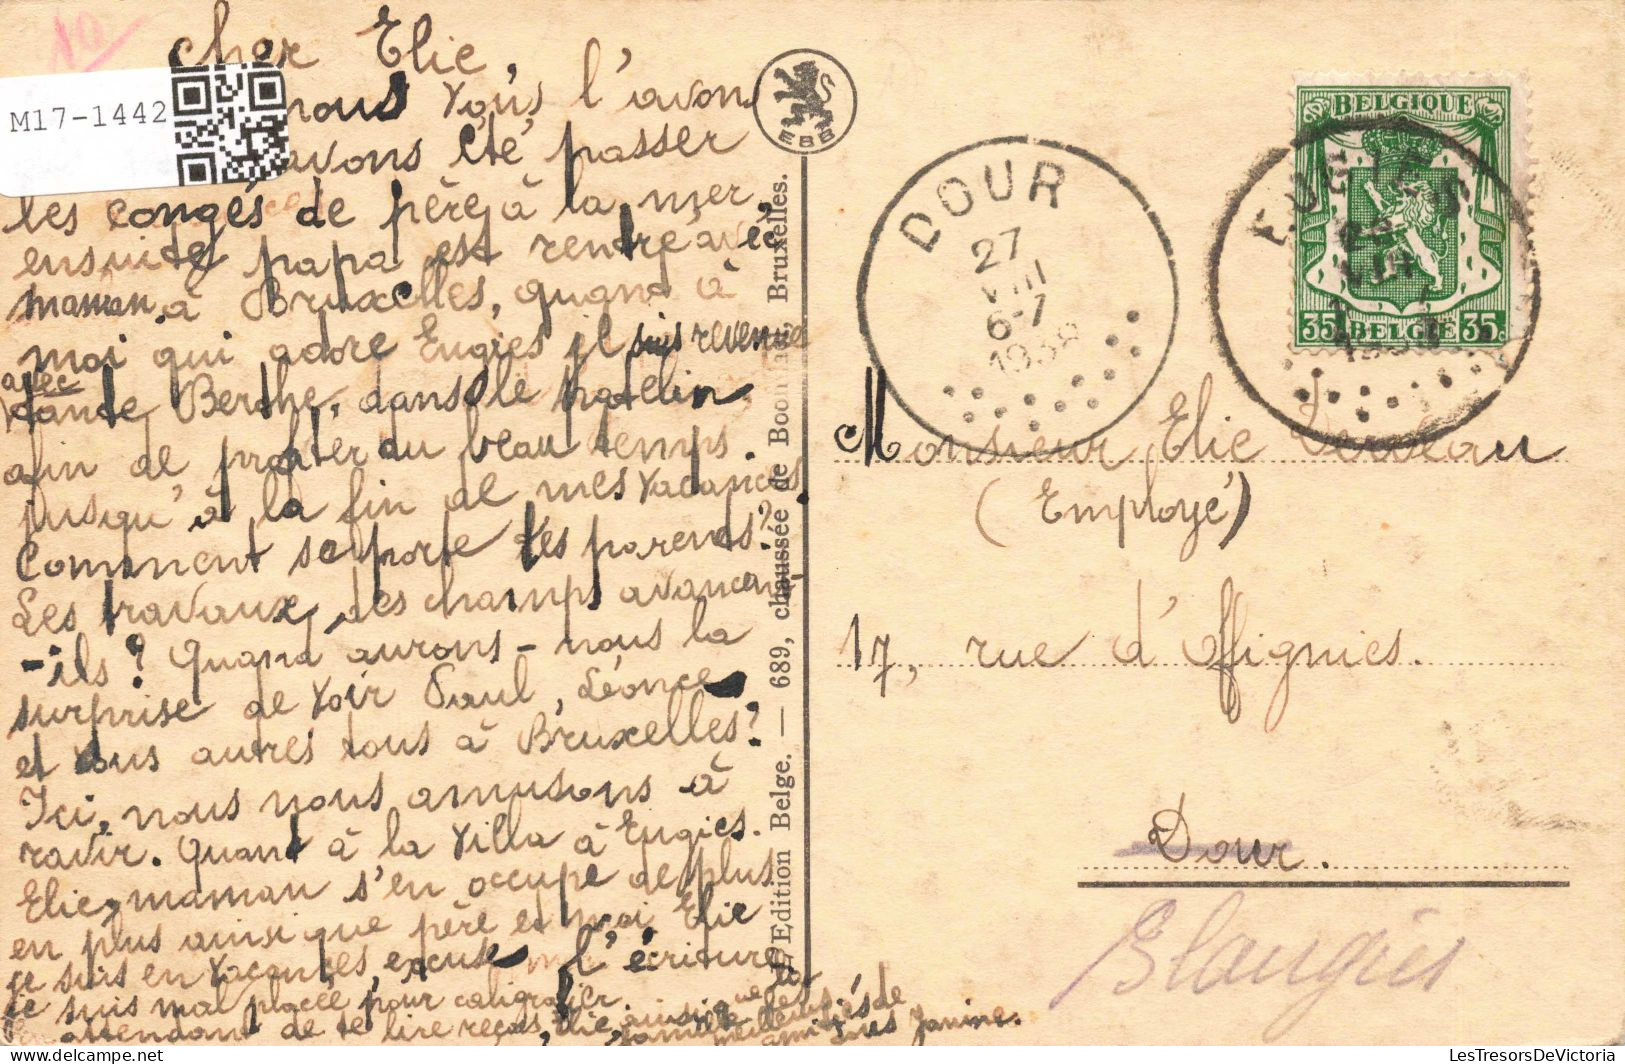 10
M17-1442
Cher Elie,
nous vous l'avons
avons été passer
les congés de père à la mer,
ensuite papa est rentré avec
maman à Bruxelles, quand à
moi qui adore Eugies je suis revenue
avec
tante Berthe, dans le patelin
afin de profiter du beau temps.
jusqu'à la fin de mes vacances.
Comment se porte tes parents?
Les travaux des champs avancent-
-ils? Quand aurons-nous la
surprise de voir Paul, Léonce
et vous autres tous à Bruxelles?
Ici, nous nous amusons à
ravir. Quant à la villa à Eugies.
Elie, maman s'en occupe de plus
en plus ainsi que père et moi. Elie
je suis en vacances, excuse l'écriture,
je suis mal placée pour caligrafier.
attendant de te lire reçois, Elie, ainsi que
famille meilleures amitiés de
Janine.
EBB
Edition Belge. — 689, chaussée de Boondael, Bruxelles.
DOUR
27
VIII
6-7
1938
EUGIES
BELGIQUE
35 BELGIË 35
Monsieur Elie
(Employé)
17, rue d'Offignies.
Dour.
Blaugies
LesTresorsDeVictoria